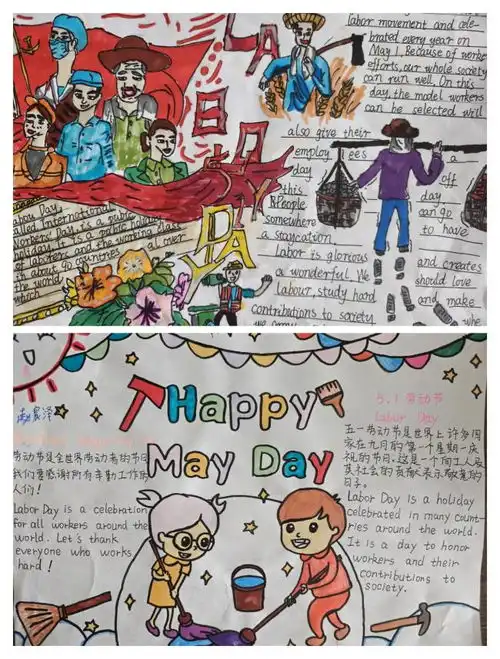 LA
BO
DAY
labor movement and cele-
brated every year on
May 1. Because of worke
efforts, our whole society
can run well. On this
day, the model workers
can be selected will
also give their
employees a
day off
this day
People can go
somewhere to have
a staycation
Labor is glorious and creates
a wonderful. We should love
Labour, study hard and make
contributions to society
Labou Day,
alled International
Workers' Day, is a public holiday
holiday. It is a public
of laborers and the working class
in about 90 countries al over
the world
which
Happy
May Day
赵家泽
劳动节是全世界劳动者的节日
我们要感谢所有辛勤工作的
人们!
Labor Day is a celebration
for all workers around the
world. Let's thank
everyone who works
hard!
5.1 劳动节
Labor Day
五一劳动节是世界上许多国
家在九月的第一个星期一庆
祝的节日。这是一个向工人及
其社会的贡献表示敬意的
日子。
Labor Day is a holiday
celebrated in many count-
ries around the world.
It is a day to honor
workers and their
contributions to
society.